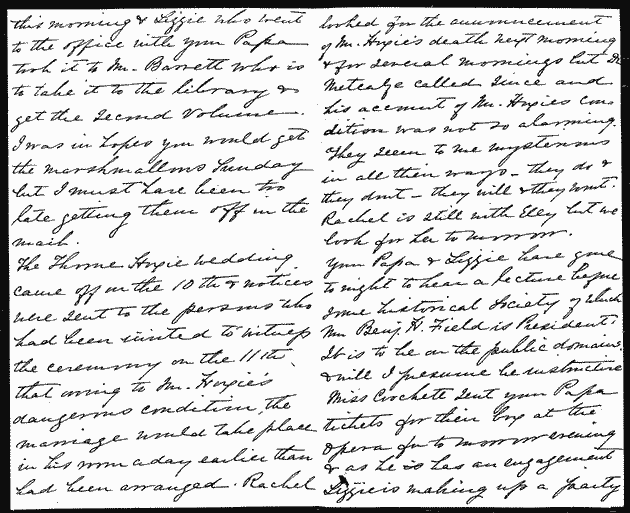 this morning & Lizzie who went
to the office with your Papa
took it to Mr. Barrett who is
to take it to the library &
get the Second Volume.
I was in hopes you would get
the marshmallows Sunday
but I must have been too
late getting them off in the
mail.
The Thorne Hoxie wedding
came off on the 10th & notices
were sent to the persons who
had been invited to witness
the ceremony on the 11th,
that owing to Mr. Hoxie's
dangerous condition, the
marriage would take place
in his room a day earlier than
had been arranged. Rachel
looked for the announcement
of Mr. Hoxie's death next morning
& for several mornings but Dr
Metcalfe called since and
his account of Mr. Hoxies con
dition was not so alarming.
They seem to me mysterious
in all their ways - they do &
they dont - they will & they wont.
Rachel is still with Elly but we
look for her tomorrow.
Your Papa & Lizzie have gone
to night to hear a lecture before
some historical Society of which
Mr Benj. H. Field is President.
It is to be on the public domains
& will I presume be instructive
Miss Crockett sent your Papa
tickets for their box at the
Opera for tomorrow evening
& as he is has an engagement
Lizzie is making up a party